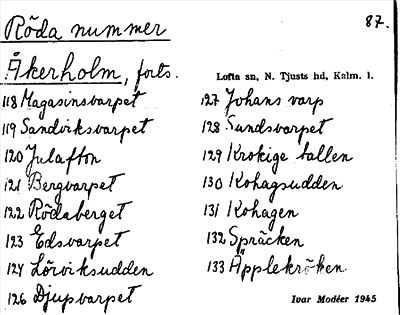 Röda nummer
87.
Åkerholm, forts.
Lofta sn, N. Tjusts hd, Kalm. l.
118 Magasinsvarpet
119 Sandviksvarpet
120 Julafton
121 Bergvarpet
122 Rödaberget
123 Edsvarpet
124 Lörviksudden
126 Djupvarpet
127 Johans varp
128 Sundsvarpet
129 Krokige tallen
130 Kohagsudden
131 Kohagen
132 Spräcken
133 Äpplekröken
Ivar Modéer 1945